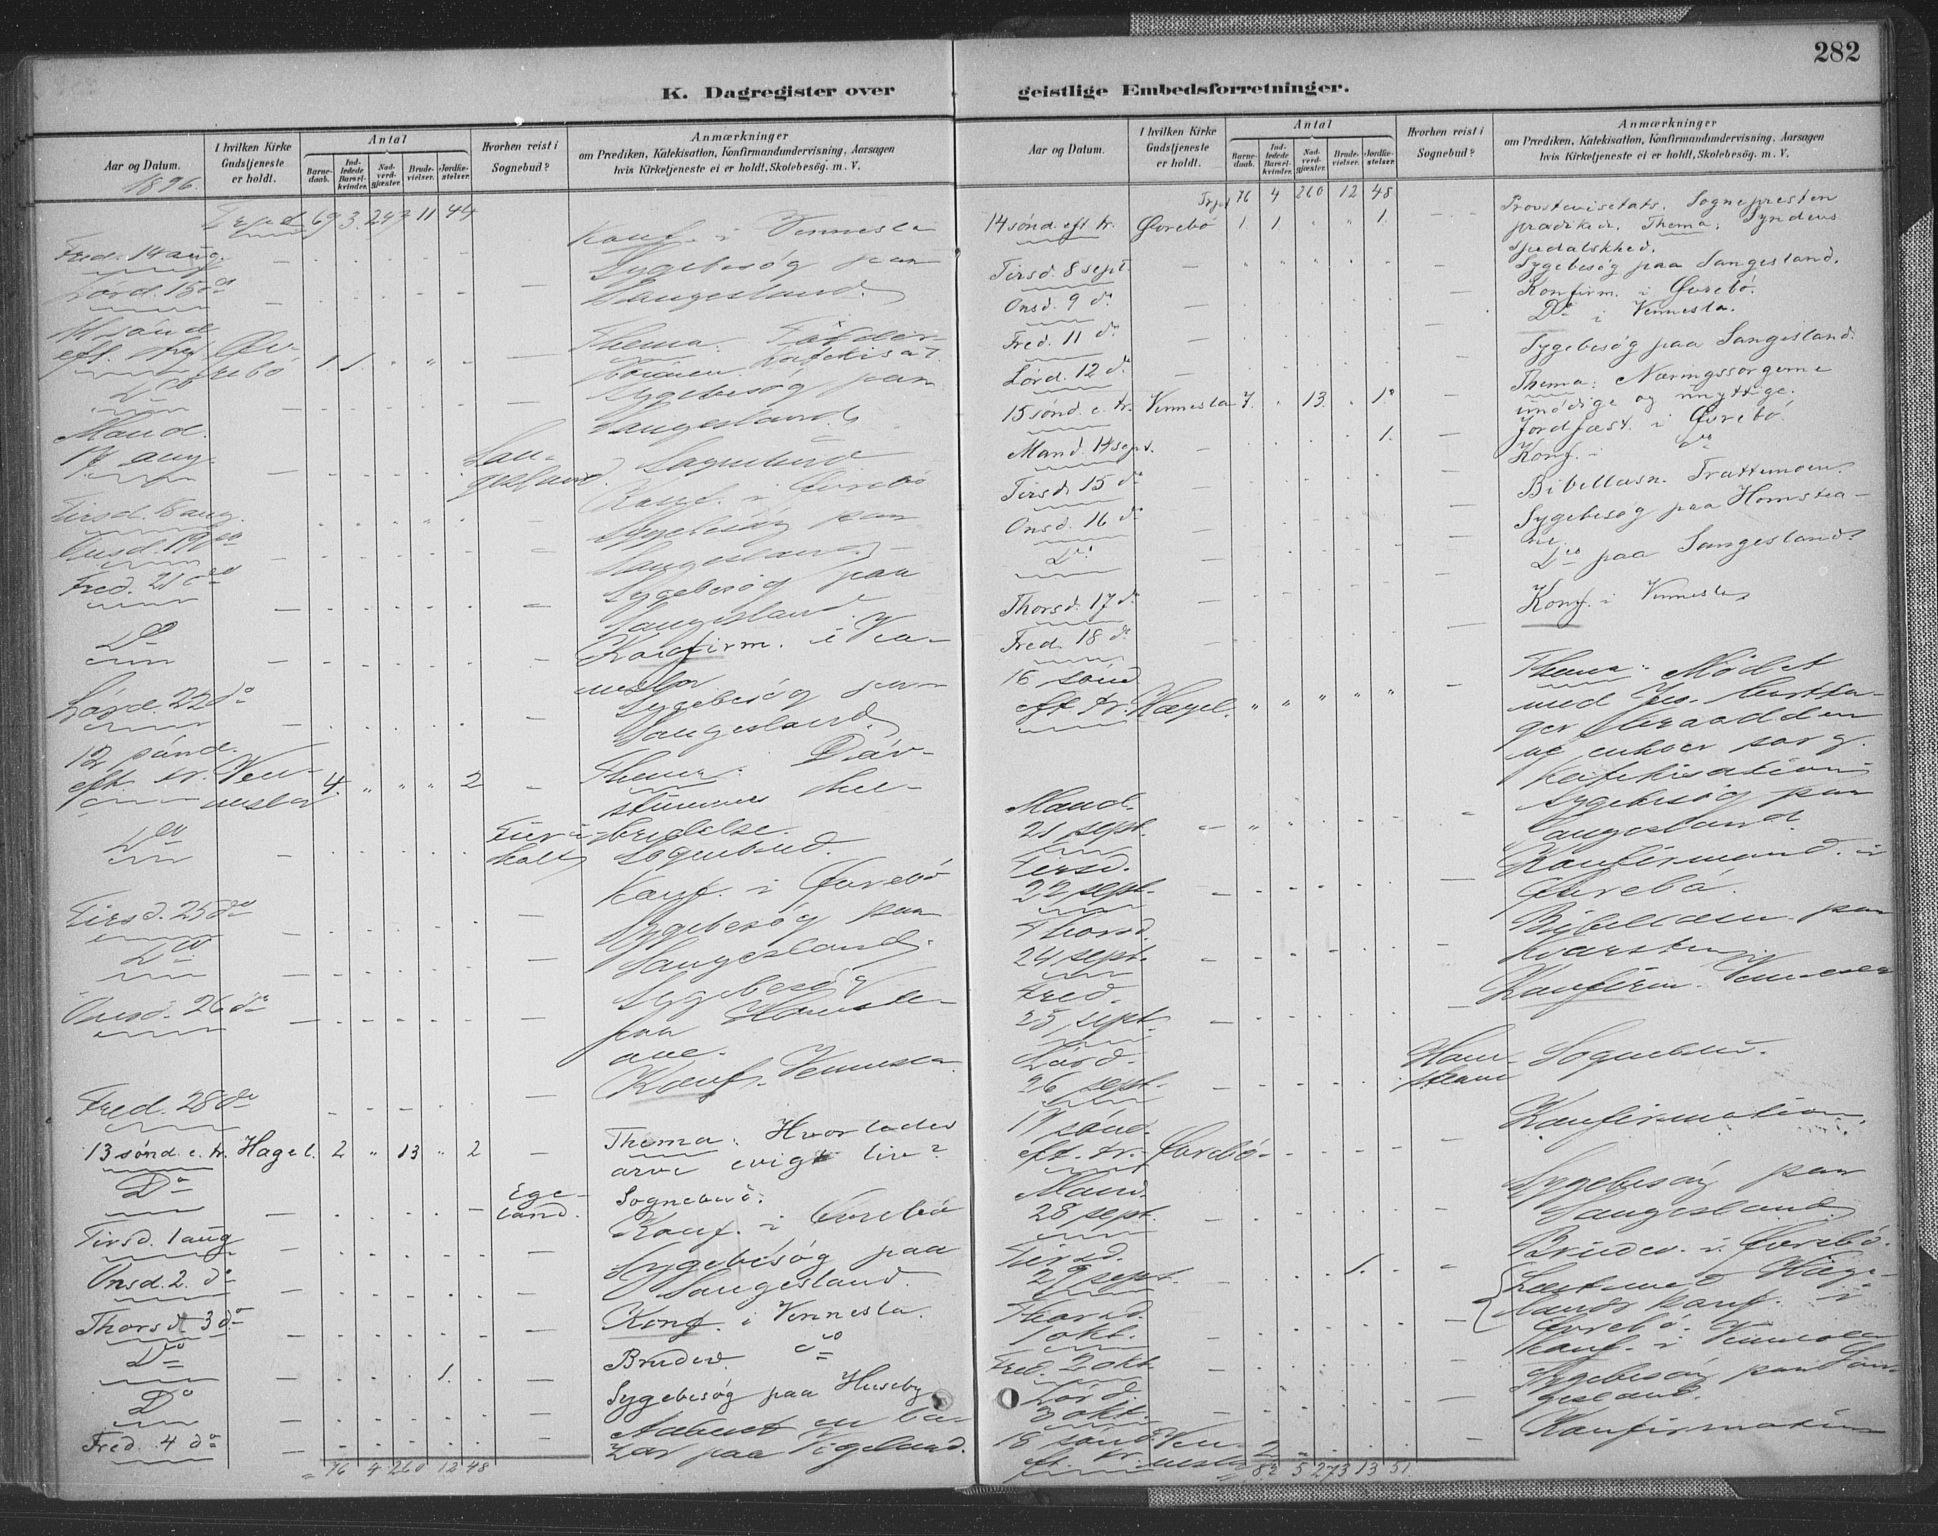 282
K. Dagregister over
geistlige Embedsforretninger.
Aar og Datum.
1896.
I hvilken Kirke Gudstjeneste er holdt.
Antal
Barne-daab.
Ind-ledede Barsel-kvinder.
Nad-verd-gjæster.
Brude-vielser.
Jordfæ-stelser.
Hvorhen reist i Sognebud?
Anmærkninger
om Prædiken, Katekisation, Konfirmandundervisning, Aarsagen
hvis Kirketjeneste ei er holdt, Skolebesøg. m. V.
69 3 247 11 44
Fred. 14 aug. Konf. i Vennesla
Lørd. 15 do Sygebesøg paa
Langesland.
11 sønd
eft. tref. Øv-
rebø 1 1 Thema:
Katekisat.
Do Sygebesøg paa
Langesland.
Mand.
17 aug. Lan-
gesland. Sognebud
Tirsd. 18 aug. Konf. i Øvrebø
Onsd. 19 do Sygebesøg paa
Langesland.
Fred. 21 do Sygebesøg paa
Langesland
Do Konfirm. i Ven-
nesla
Lørd. 22 do Sygebesøg paa
Langesland.
12 sønd.
eft. tr. Ven-
nesla 4. 2 Thema: Døv-
stummes hel-
bredelse.
Do Sognebud.
Tirsd. 25 do Konf. i Øvrebø
Do Sygebesøg paa
Langesland.
Onsd. 26 do Sygebesøg
paa Homste-
ane.
Fred. 28 do Konf. Vennesla.
13 sønd. e. tr. Hægel. 2 " 13 " 2 Thema: Hvorledes
arve evigt liv?
Do Ege-
land. Sognebud.
Tirsd. 1 aug Konf. i Øvrebø
Onsd. 2. do Sygebesøg paa
Langesland.
Thorsd. 3 do Konf. i Vennesla.
Do 1. Brudev. do
Do Sygebesøg paa Huseby
Fred. 4 do Aabnet en ba-
zar paa Vigeland.
= 76 4 260 12 48
Aar og Datum.
I hvilken Kirke Gudstjeneste er holdt.
Antal
Barne-daab.
Ind-ledede Barsel-kvinder.
Nad-verd-gjæster.
Brude-vielser.
Jordfæ-stelser.
Hvorhen reist i Sognebud?
Anmærkninger
om Prædiken, Katekisation, Konfirmandundervisning, Aarsagen
hvis Kirketjeneste ei er holdt, Skolebesøg. m. V.
76 4 260 12 48
14 sønd. eft. tr. Øvrebø 1. 1 1. Provstevisetats. Sognepresten
prædiked. Thema: Syndens
Spedalskhed.
Tirsd. 8 sept. Sygebesøg paa Langesland.
Onsd. 9 do Konfirm. i Øvrebø.
Fred. 11 do Do i Vennesla.
Lørd. 12 do Sygebesøg paa Langesland.
15 sønd. e. tr. Vennesla 7. 13. 1. Thema: Næringssorgerne
unødige og unyttige.
Mand. 14 sept. 1. Jordfæst. i Øvrebø
Tirsd. 15 do Konf. i do
Onsd. 16 do Bibellæsn. Drattemoen.
Sygebesøg paa Homstea-
ne.
Do Do paa Langesland.
Thorsd. 17 do
Fred. 18 do Konf. i Vennesla
16 sønd
eft. tr. Hægel. Thema: Mødet
med Jes.
og enhver sorg.
Katekisation
Mand.
21 sept. Sygebesøg paa
Langesland.
Tirsd.
22 sept. Konfirmand. i
Øvrebø.
Thorsd.
24 sept. Bibellæsn. paa
Fred.
25 sept. Konfirm. Vennesla
Lørd.
26 sept. Hom-
steane Sognebud.
17 sønd.
eft. tr. Øvrebø Konfirmation.
Mand.
28 sept. Sygebesøg paa
Langesland
Tirsd.
29 sept. 1. Brudev. i Øvrebø.
Thorsd.
1 okt. Læst med Hæge-
lands konf. i
Øvrebø.
Fred. 2 okt. Konf. i Vennesla
Lørd.
3 okt. Sygebesøg paa Lan-
gesland.
18 sønd.
eft. tr. Ven-
nesla 2 Konfirmation
= 82 5 273 13 51.